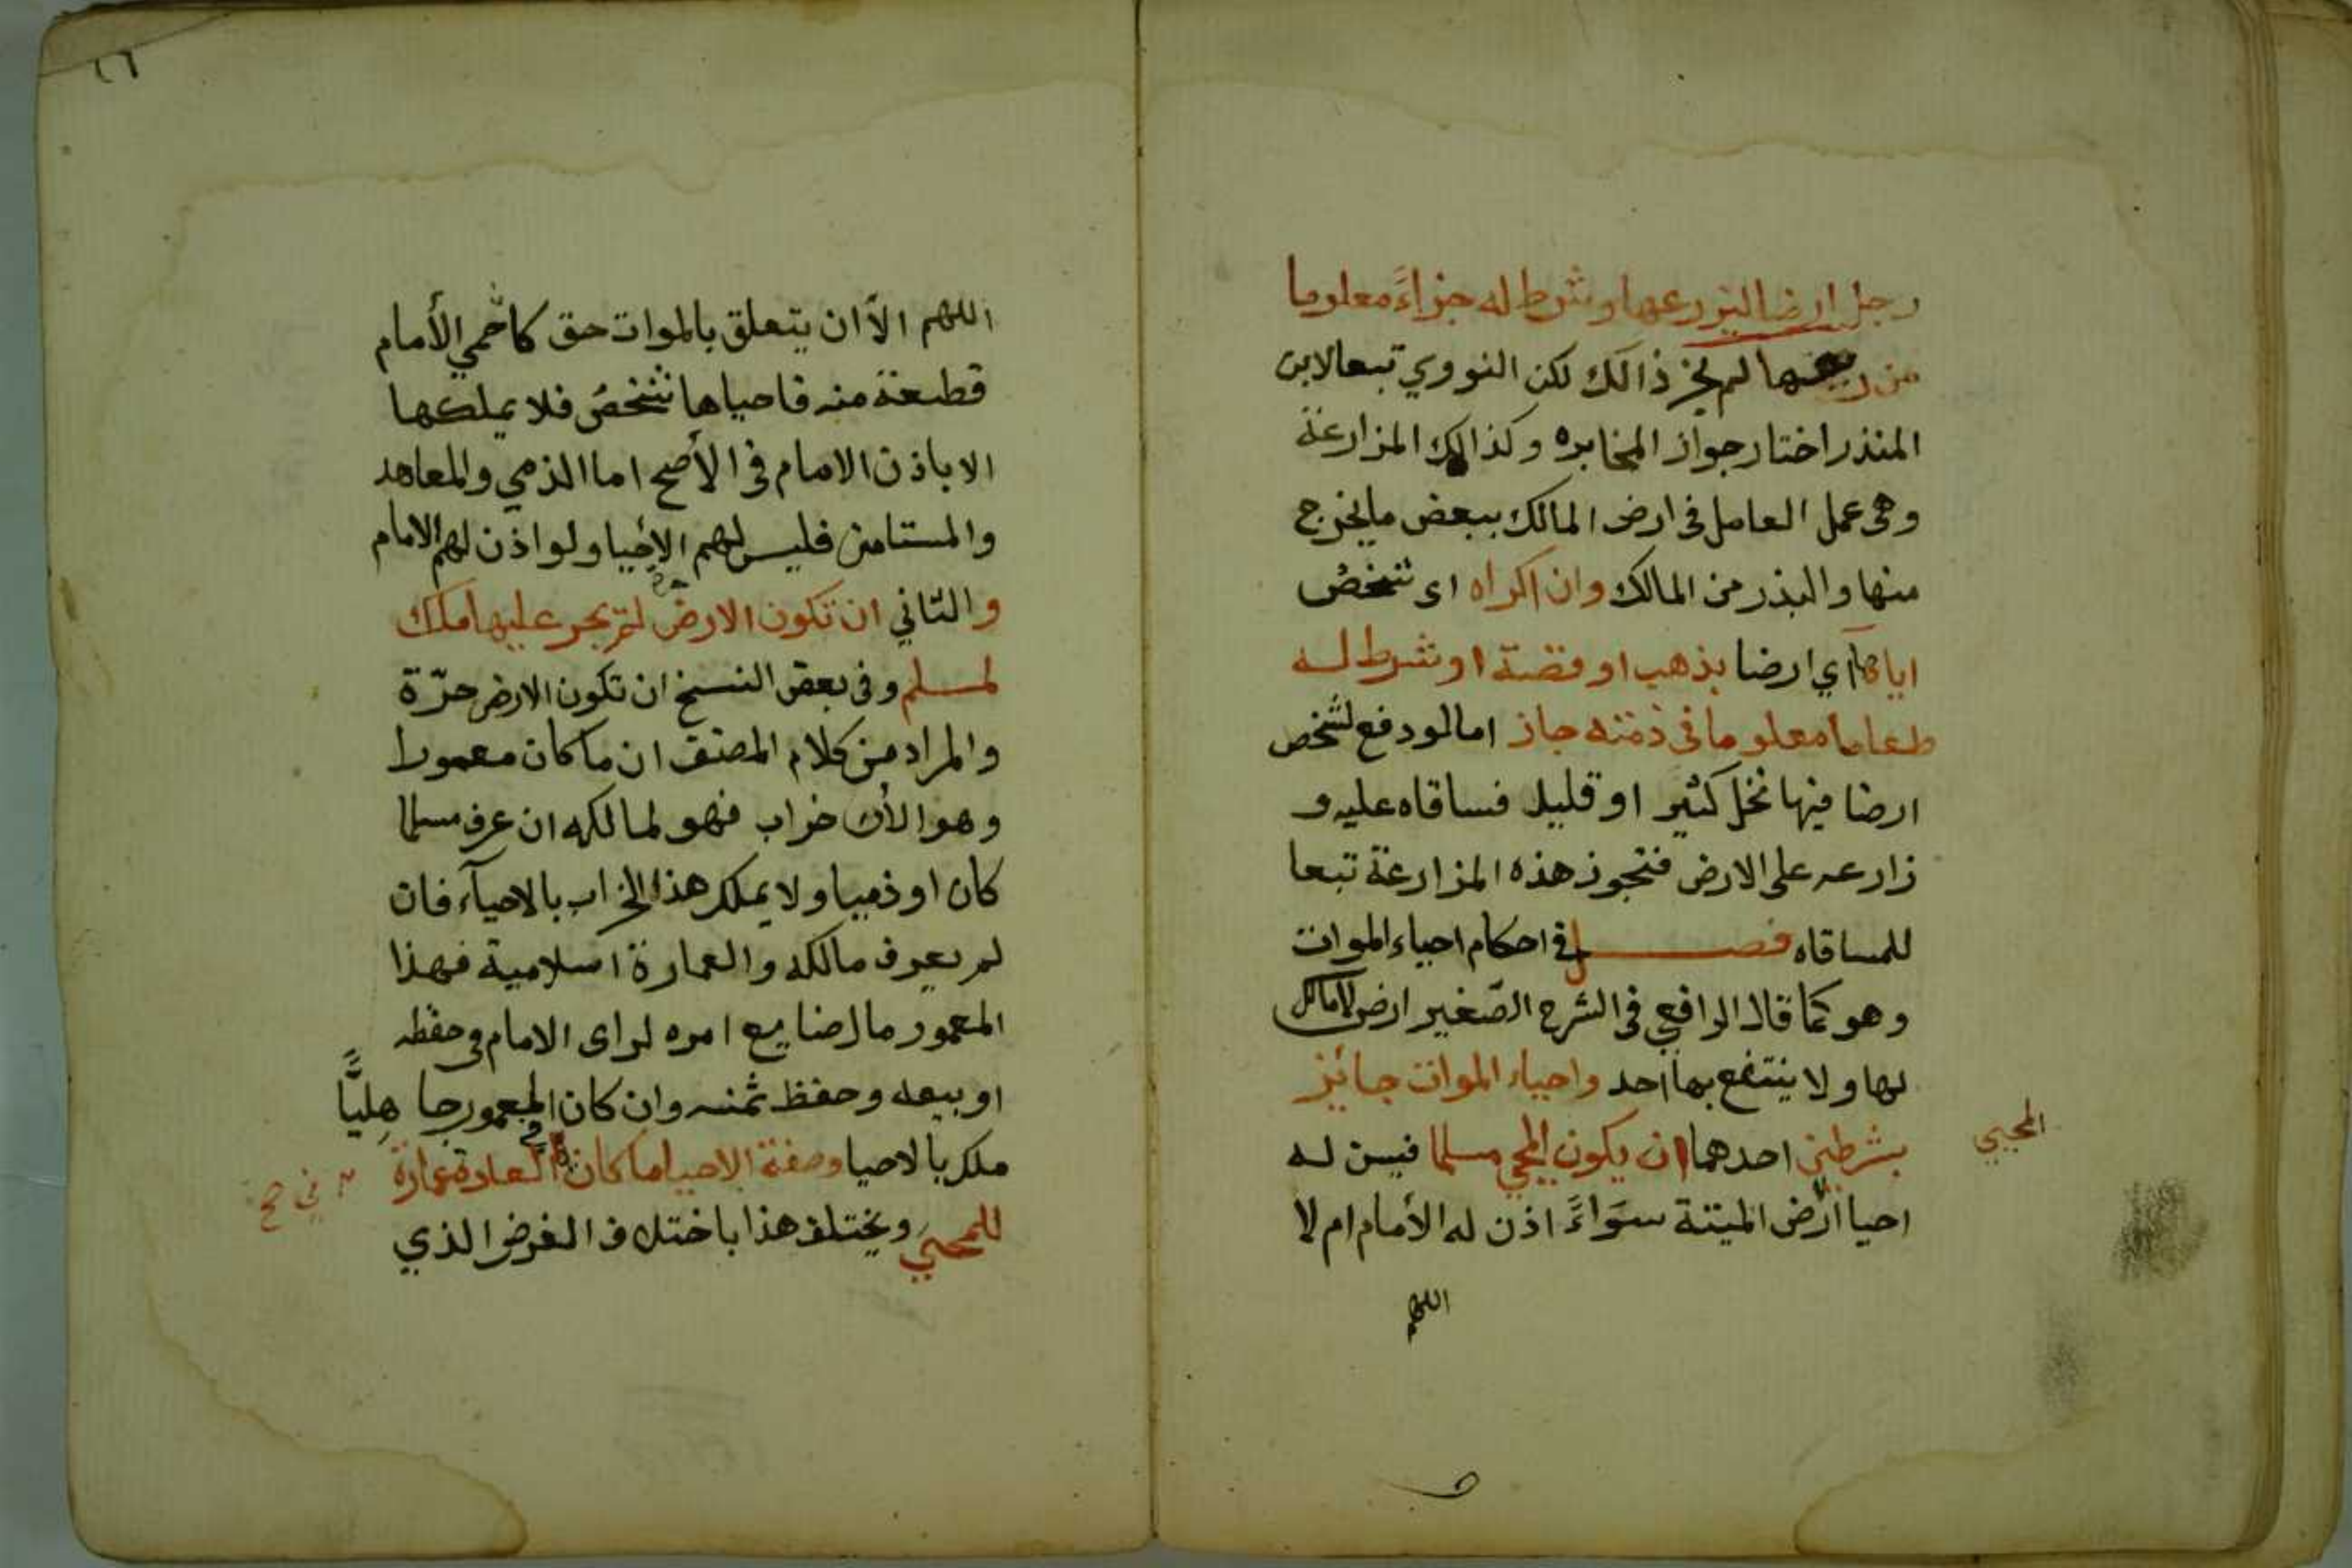 رجل ارضا ليزرعها وشرط له جزاءً معلوما
من ريعها لم يجز ذالك لكن النووي تبعا لابن
المنذر اختار جواز المخابره وكذالك المزارعة
وهي عمل العامل في ارض المالك ببعض ما يخرج
منها والبذر من المالك وان اكراه اى شخص
اياها اي ارضا بذهب او فضة او شرط له
طعاما معلوما في ذمته جاز اما لو دفع لشخص
ارضا فيها نخل كثير او قليل فساقاه عليه و
زارعه على الارض فتجوز هذه المزارعة تبعا
للمساقاه فصل في احكام احياء الموات
وهو كما قال الرافعي في الشرح الصّغير ارض لا مالك
لها ولا ينتفع بها احد واحياء الموات جائز
بشرطين احدهما ان يكون المحيي مسلما فيسن له
المحيي
احيا الأرض الميتة سَوَاءً اذن له الأمام ام لا
اللهم
٢٦
اللهم الاّ ان يتعلق بالموات حق كأنْ حمي الأمام
قطعة منه فاحياها شخص فلا يملكها
الا باذن الامام في الأصح اما الذمي والمعاهد
والمستامن فليس لهم الأحيا ولو اذن لهم الامام
والثاني ان تكون الارض لم يجر عليها ملك
لمسلم وفي بعض النسخ ان تكون الارض حرّة
والمراد من كلام المصنف ان ما كان معمورا
وهو الأن خراب فهو لمالكه ان عرف مسلما
كان او ذميا ولا يملك هذا الخراب بالاحيآء فان
لم يعرف مالكه والعمارة اسلامية فهذا
المعمور مال ضايع امره لراى الامام في حفظه
او بيعه وحفظ ثمنه وان كان المعمور جاهليًّا
ملك بالاحيا وصفة الاحيا ما كان في العادة عمارة
في صح
للمحيي ويختلف هذا باختلاف الغرض الذي